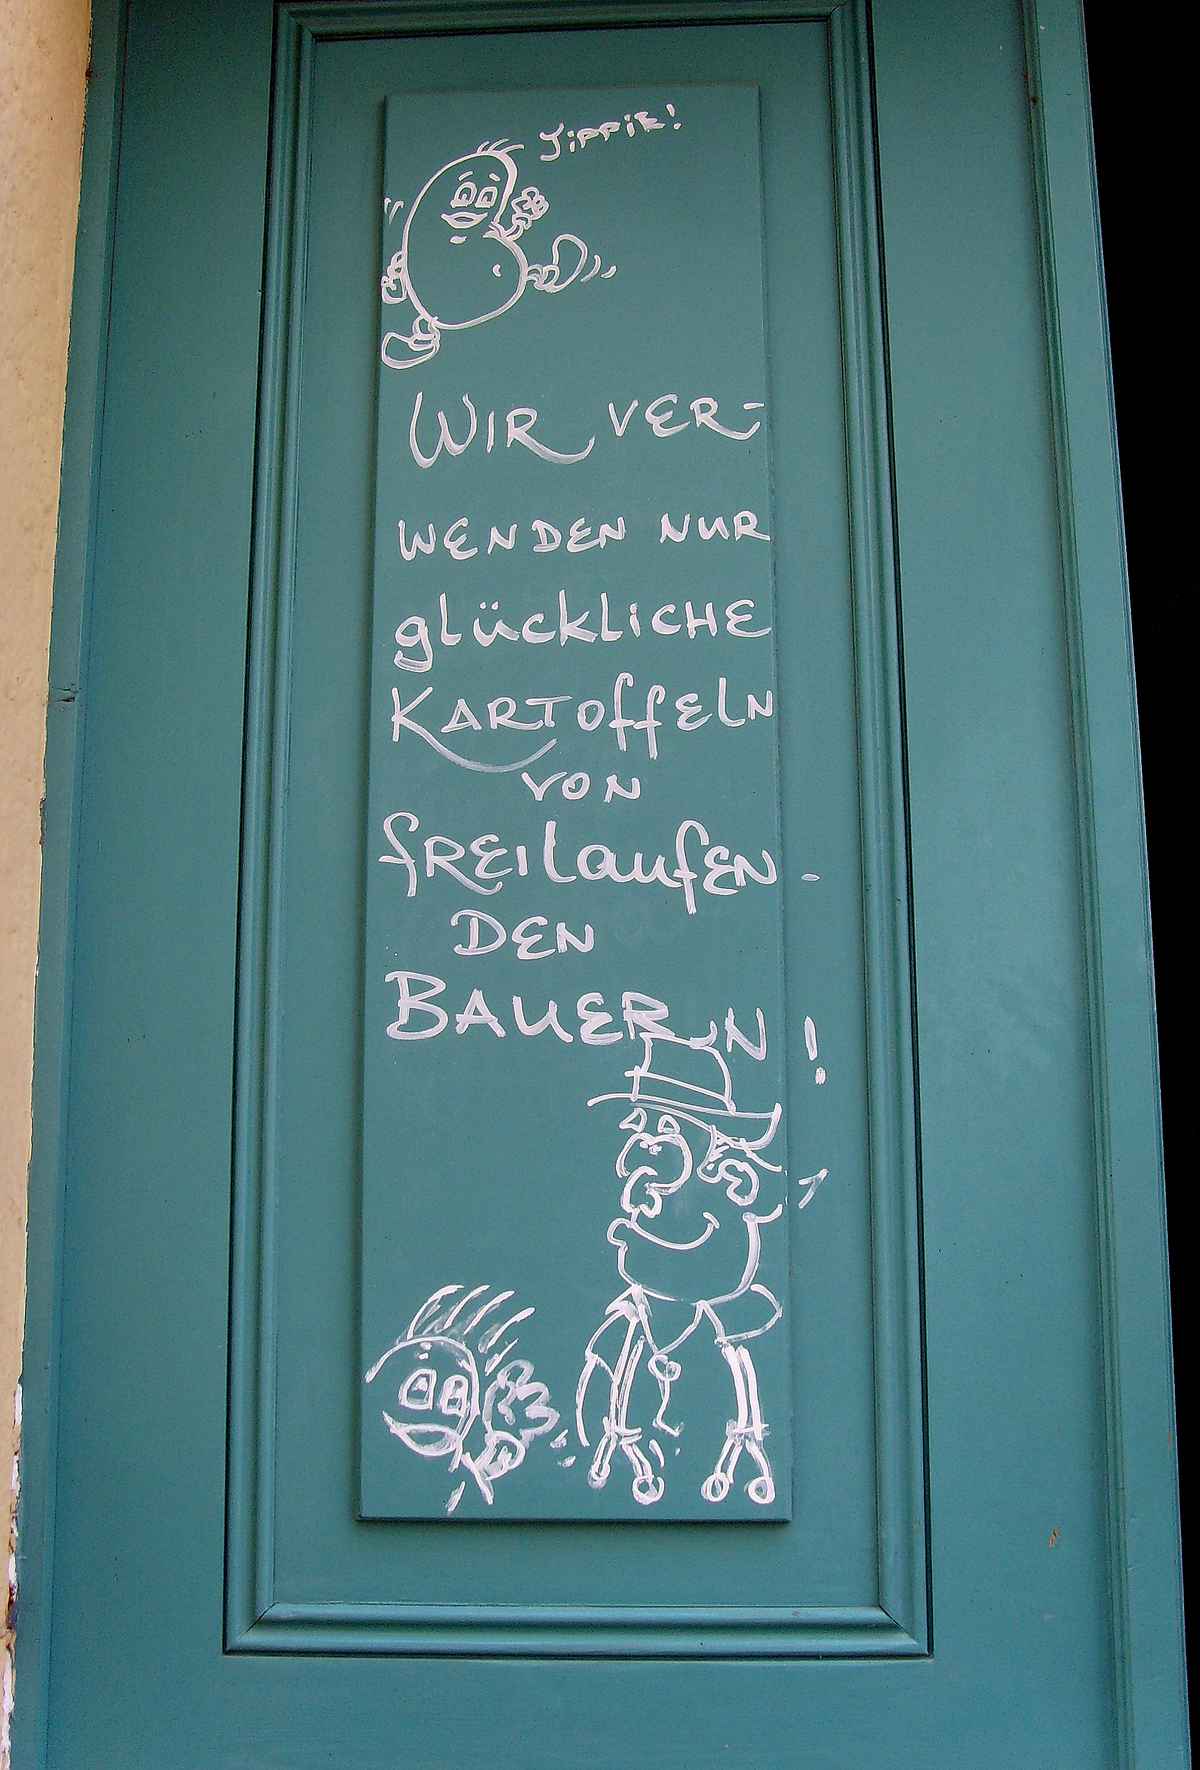 Jippie!
WIR VER-
WENDEN NUR
glückliCHE
KARTOffEln
VON
fREilaufEN-
DEN
BAUERN!